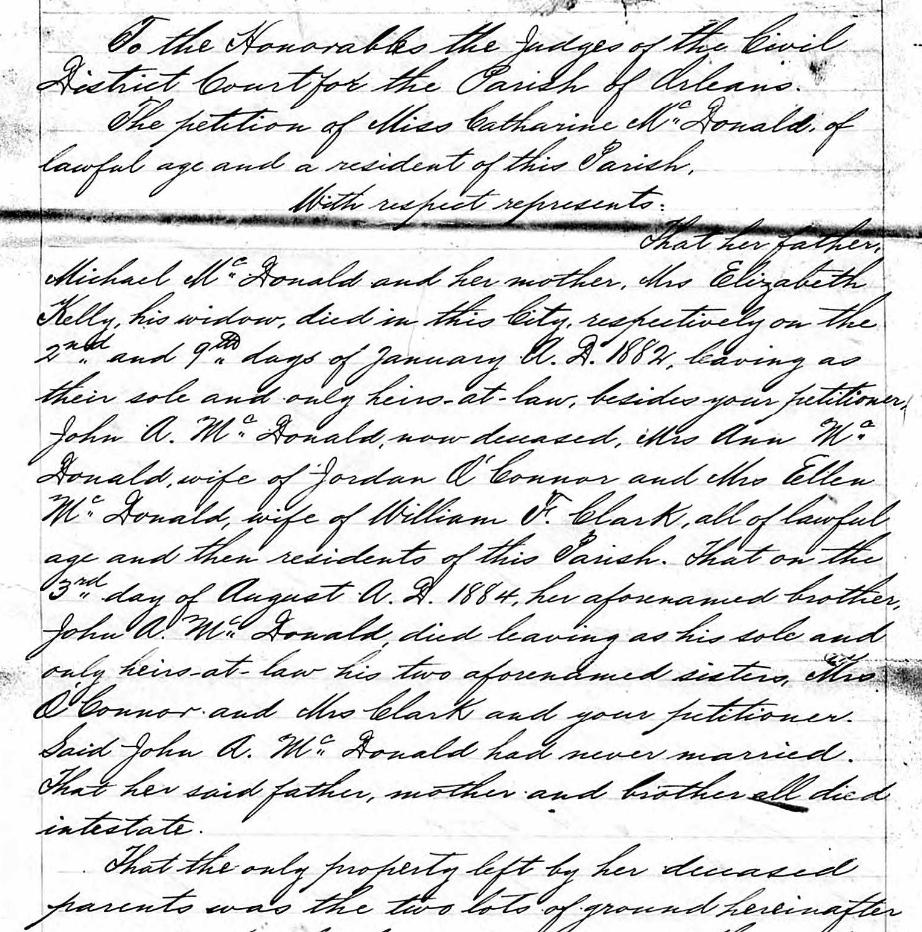 To the Honorables the Judges of the Civil
District Court for the Parish of Orleans.
The petition of Miss Catharine Mc Donald, of
lawful age and a resident of this Parish,
With respect represents:
That her father,
Michael Mc Donald and her mother, Mrs Elizabeth
Kelly, his widow, died in this City, respectively on the
2nd and 9th days of January A. D. 1882, leaving as
their sole and only heirs-at-law, besides your petitioner,
John A. Mc Donald, now deceased, Mrs Ann Mc
Donald, wife of Jordan O'Connor and Mrs Ellen
Mc Donald, wife of William F. Clark, all of lawful
age and then residents of this Parish. That on the
3rd day of August A. D. 1884, her aforenamed brother,
John A. Mc Donald, died leaving as his sole and
only heirs-at-law his two aforenamed sisters, Mrs
O'Connor and Mrs Clark and your petitioner.
Said John A. Mc Donald had never married.
That her said father, mother and brother all died
intestate.
That the only property left by her deceased
parents was the two lots of ground hereinafter